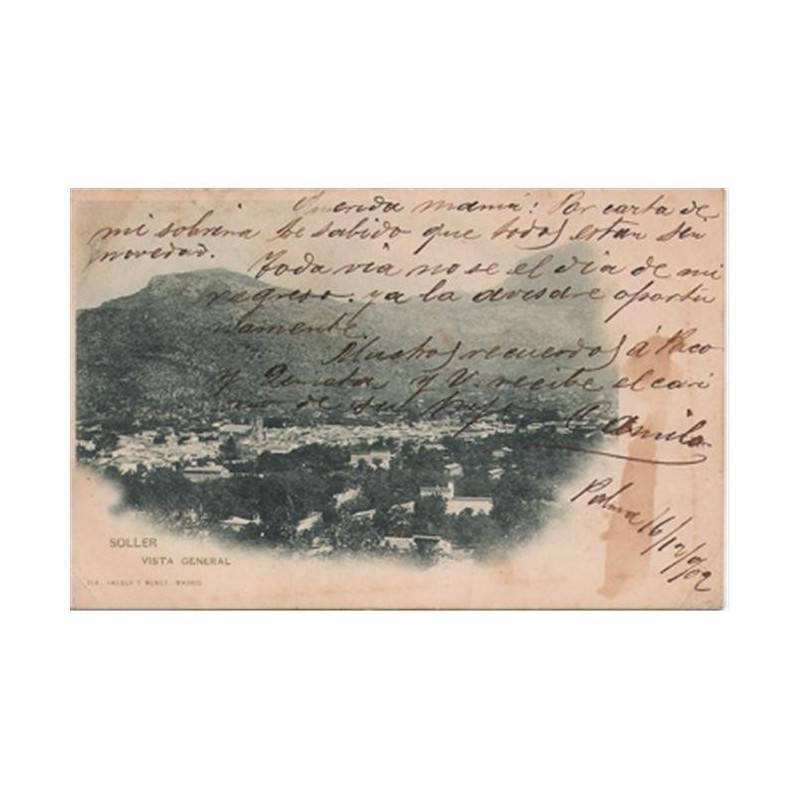 Querida mamá: Por carta de
mi sobrina he sabido que todos estan sin
novedad.
Toda via no se el dia de mi
regreso. ya la avisare oportu
namente.
Muchos recuerdos á Paco
y y V. recibe el cari
ño de su hijo
Camilo
Palma 16/12/902
SOLLER
VISTA GENERAL
HAUSER Y MENET. MADRID